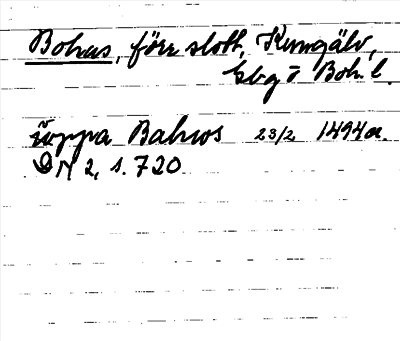 Bohus, förr slott, Kungälv,
Gbg o Boh. l.
uppa Bahws 23/2 1494 a.
DN 2, s. 720